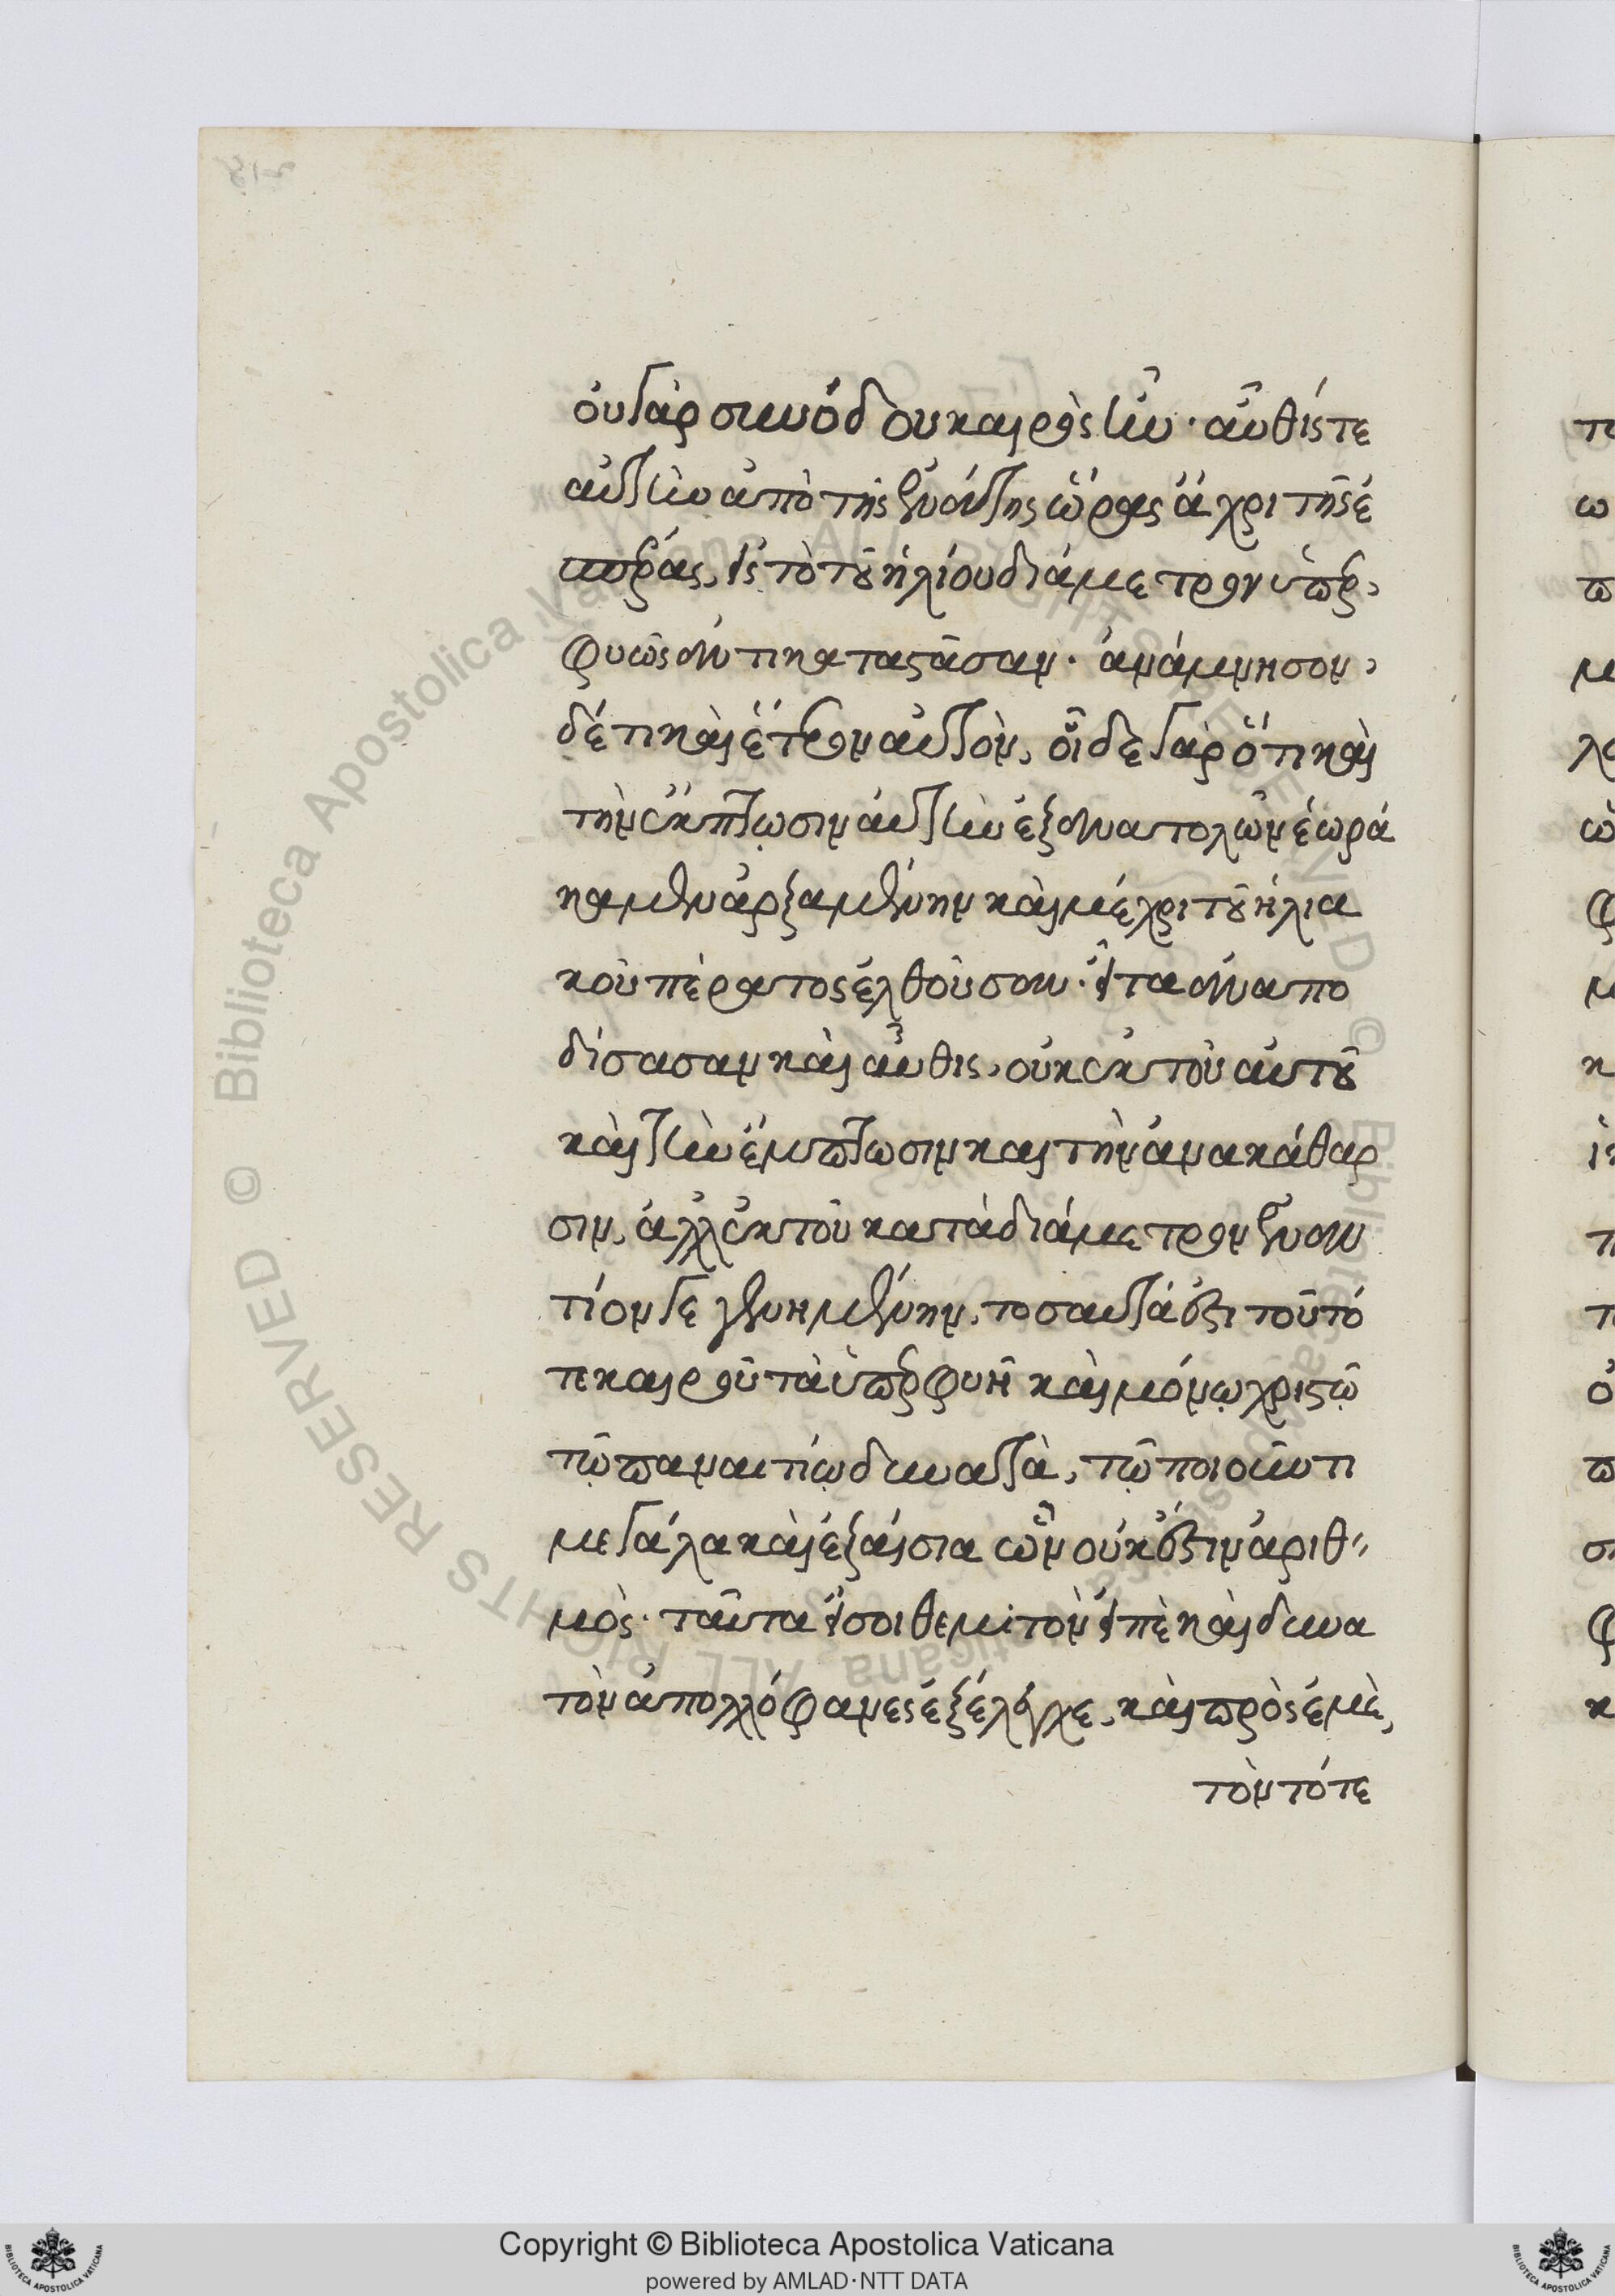 οὐ γὰρ συνόδου καιρὸς ἦν· αὖθίς τε
αὐτὴν ἀπὸ τῆς ἐννάτης ὥρας ἄχρι τῆς ἑ
σπέρας, εἰς τὸ τοῦ ἡλίου διάμετρον ὑπερ
φυῶς ἀντικαταστᾶσαν· ἀνάμνησον
δέ τι καὶ ἕτερον αὐτὸν, οἶδε γὰρ ὅτι καὶ
τὴν ἔκπτωσιν αὐτὴν ἐξ ἀνατολῶν ἑωρά
καμεν ἀρξαμένην καὶ μέχρι τοῦ ἡλια
κοῦ πέρατος ἐλθοῦσαν· εἶτα ἀναπο
δίσασαν καὶ αὖθις, οὐκ ἐκ τοῦ αὐτοῦ
καὶ τὴν ἔμπτωσιν καὶ τὴν ἀνακάθαρ
σιν, ἀλλ' ἐκ τοῦ κατὰ διάμετρον ἐναν
τίον γεγενημένην, τοσαῦτά ἐστι τοῦ τό
τε καιροῦ τὰ ὑπερφυῆ καὶ μόνῳ χριστῷ
τῷ παναιτίῳ δυνατὰ, τῷ ποιοῦντι
μεγάλα καὶ ἐξαίσια ὧν οὐκ ἔστιν ἀριθ
μὸς· ταῦτα εἴ σοι θεμιτὸν εἰπὲ καὶ δυνα
τὸν ἀπολλόφανες ἐξέλεγχε, καὶ πρὸς ἐμὲ,
τὸν τότε
Copyright © Biblioteca Apostolica Vaticana
powered by AMLAD·NTT DATA